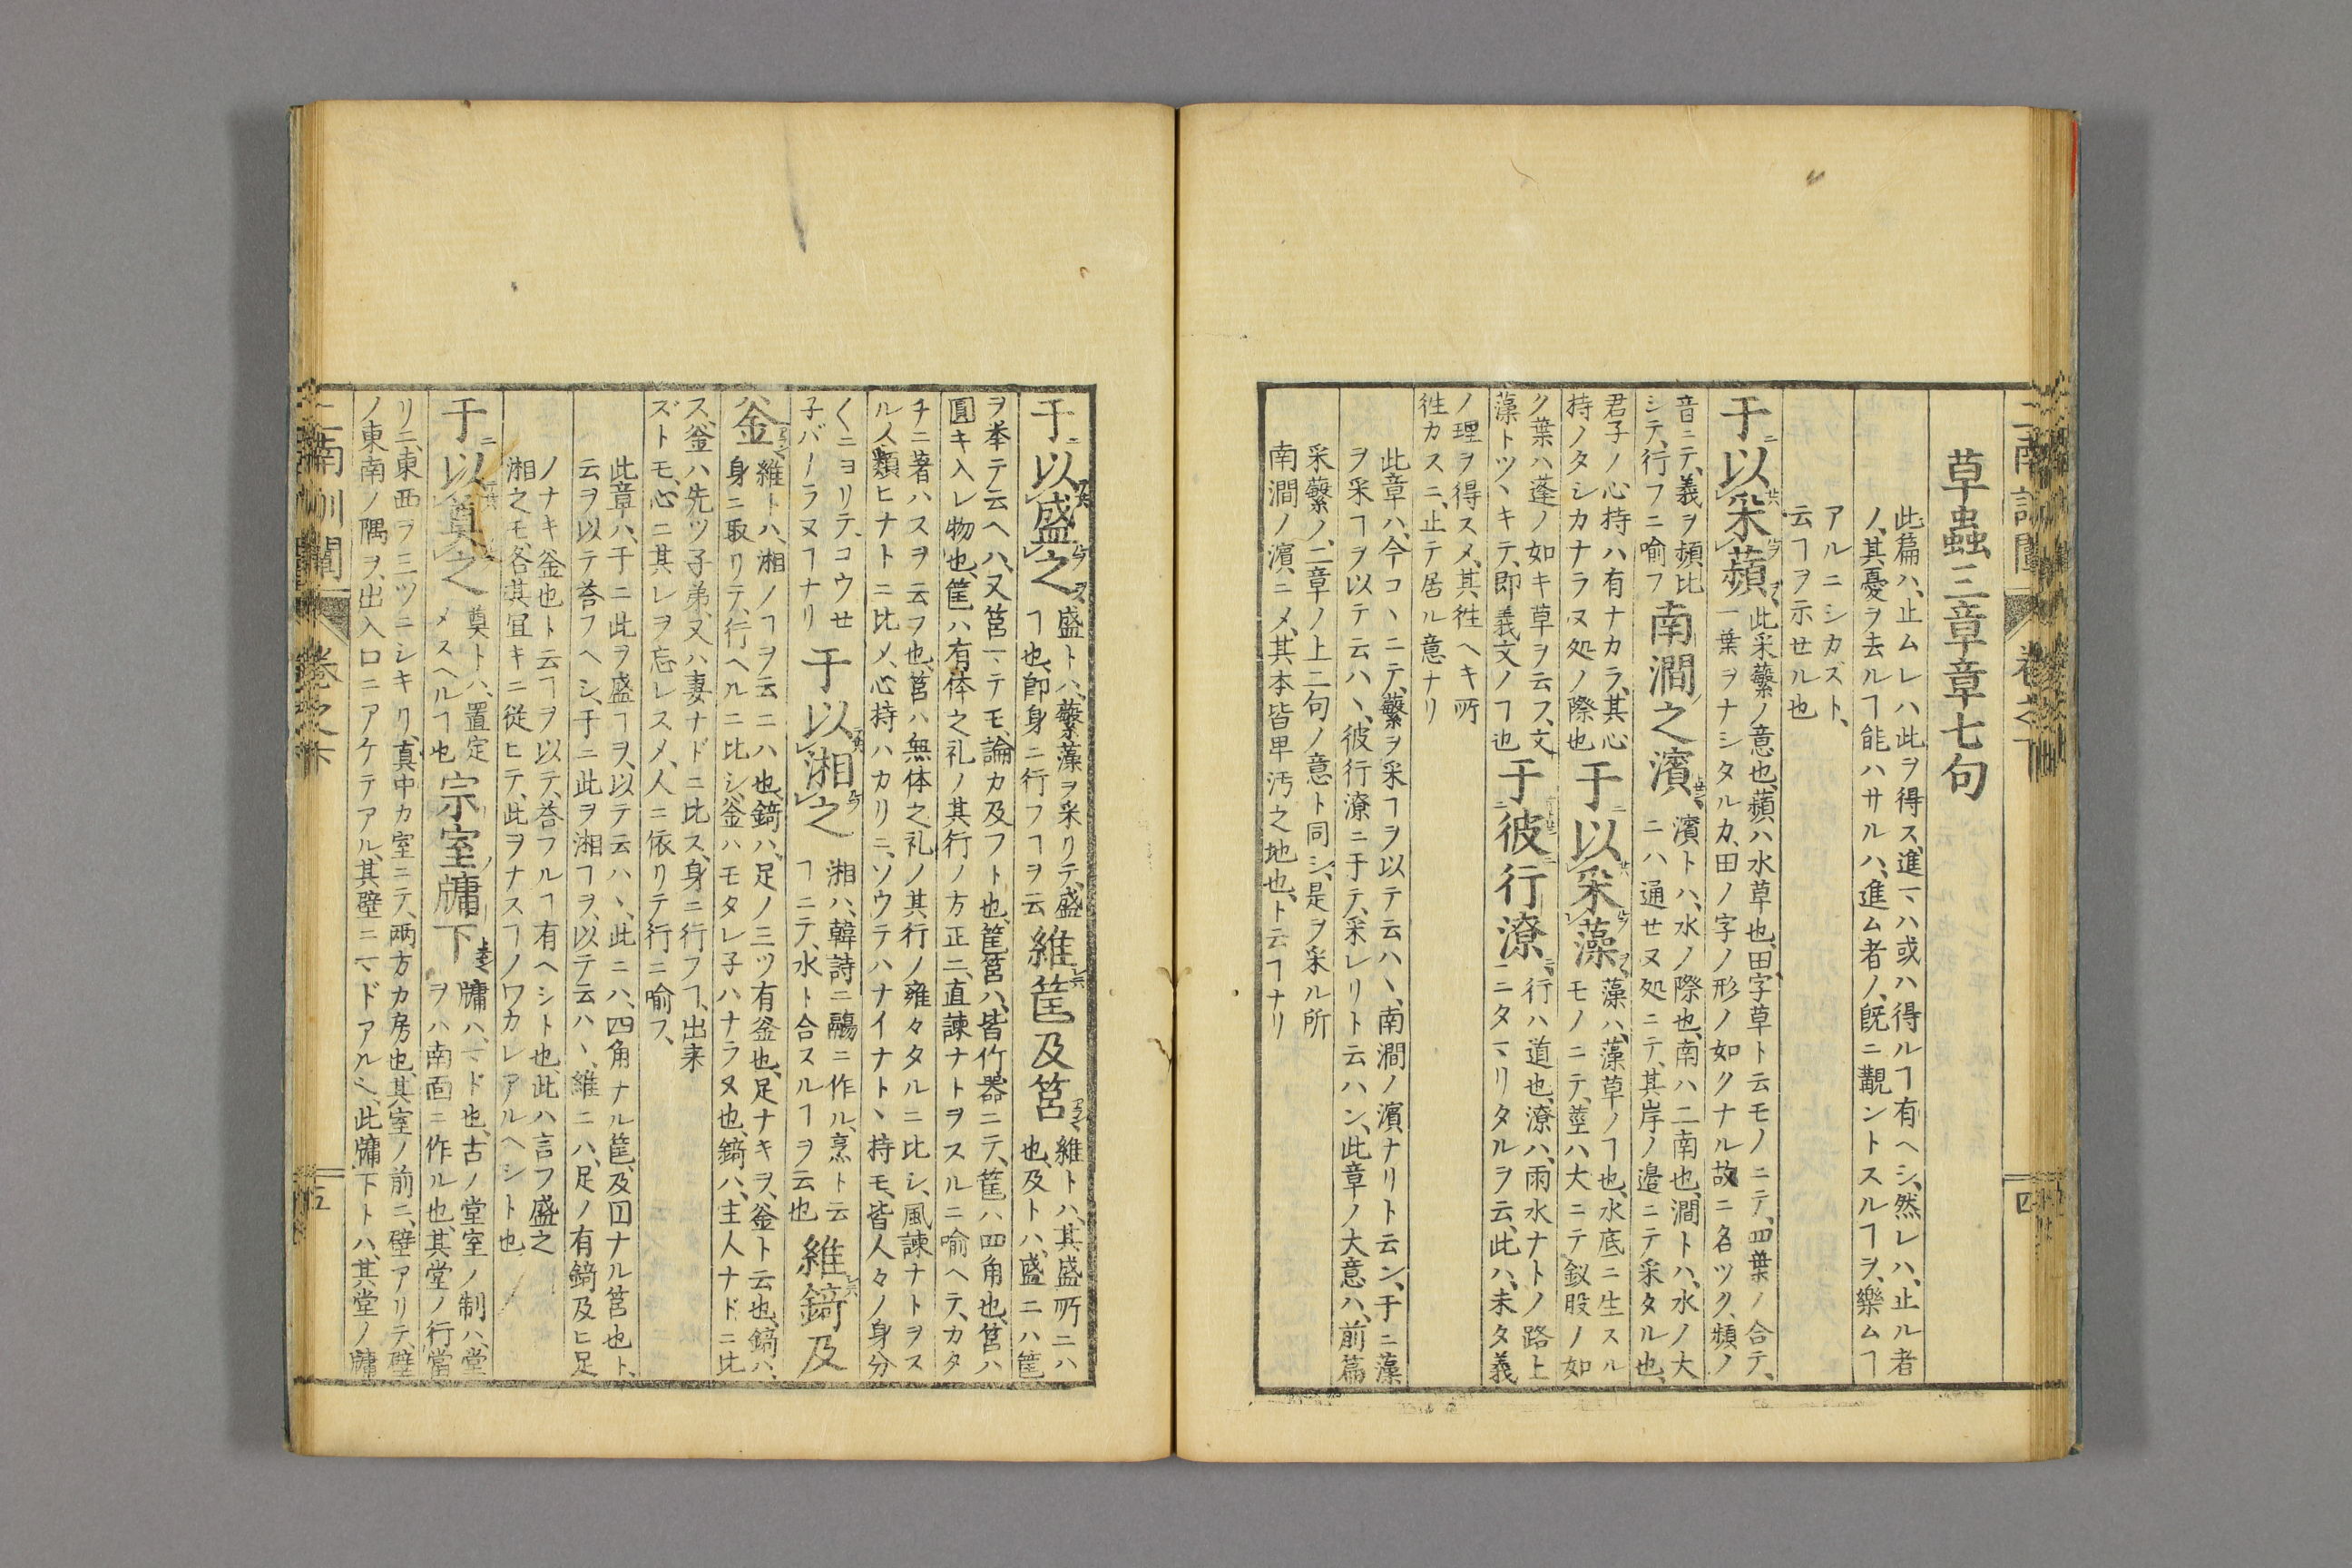 草蟲三章章七句
此篇ハ、止ムレハ此ヲ得ス、進マハ或ハ得ルヿ有ヘシ、然レハ、止ル者
ノ、其憂ヲ去ルヿ能ハサルハ、進ム者ノ、既ニ覯ントスルヿヲ、樂ムヿ
アルニシカズト、
云ヿヲ示せル也
于以采蘋
此采蘩ノ意也、蘋ハ水草也、田字草ト云モノニテ、四葉ノ合テ、
一葉ヲナシタルカ、田ノ字ノ形ノ如クナル故ニ名ツク、頻ノ
音ニテ、義ヲ頻比
シテ、行フニ喻フ
南澗之濱
濱トハ、水ノ際也、南ハ二南也、澗トハ、水ノ大
ニハ通せヌ処ニテ、其岸ノ邉ニテ采タル也、
君子ノ心持ハ有ナカラ、其心
持ノタシカナラヌ処ノ際也
于以采藻
藻ハ、藻草ノヿ也、水底ニ生スル
モノニテ、莖ハ大ニテ釵股ノ如
ク葉ハ蓬ノ如キ草ヲ云フ、文
藻トツヽキテ、即義文ノヿ也
于彼行潦
行ハ道也、潦ハ、雨水ナトノ路上
ニタマリタルヲ云、此ハ、未タ義
ノ理ヲ得スメ、其徃ヘキ所
徃カスニ、止テ居ル意ナリ
此章ハ、今コヽニテ、蘩ヲ采ヿヲ以テ云ハヽ、南澗ノ濱ナリト云ン、于ニ藻
ヲ采ヿヲ以テ云ハヽ、彼行潦ニ于テ、采レリト云ハン、此章ノ大意ハ、前篇
采蘩ノ、二章ノ上二句ノ意ト同シ、是ヲ采ル所
南澗ノ濱ニメ、其本皆卑汚之地也、ト云ヿナリ
二南訓闡 卷之下 四
于以盛之
盛トハ、蘩藻ヲ采リテ、盛
ヿ也、卽身ニ行フヿヲ云
維筐及筥
維トハ、其盛所ニハ
也、及トハ、盛ニハ筐
ヲ挙テ云ヘハ、又筥マテモ、論カ及フト也、筐筥ハ、皆竹器ニテ、筐ハ四角也、筥ハ
圓キ入レ物也、筐ハ有体之礼ノ其行ノ方正ニ、直諫ナトヲスルニ喻ヘテ、カタ
チニ著ハスヲ云フ也、筥ハ無体之礼ノ其行ノ雍々タルニ比シ、風諫ナトヲス
ル人類ヒナトニ比メ、心持ハカリニ、ソウテハナイナトヽ持モ、皆人々ノ身分
〱ニヨリテ、コウせ
子バーラヌヿナリ
于以湘之
湘ハ、韓詩ニ鬺ニ作ル、烹ト云
ヿニテ、水ト合スルヿヲ云也
維錡及
釡
維トハ、湘ノヿヲ云ニハ也、錡ハ、足ノ三ツ有釜也、足ナキヲ、釜ト云也、錡ハ、
身ニ取リテ、行ヘルニ比シ、釜ハモタレ子ハナラヌ也、錡ハ、主人ナドニ比
ス、釜ハ先ツ子弟、又ハ妻ナドニ比ス、身ニ行フヿ、出来
ズトモ、心ニ其レヲ忘レスメ、人ニ依リテ行ニ喻フ、
此章ハ、于ニ此ヲ盛ヿヲ、以テ云ハヽ、此ニハ、四角ナル筐、及囙ナル筥也ト、
云ヲ以テ荅フヘシ、于ニ此ヲ湘ヿヲ、以テ云ハヽ、維ニハ、足ノ有錡及ヒ足
ノナキ釜也ト云ヿヲ以テ、荅フルヿ有ヘシト也、此ハ言フ盛之
湘之モ、各其宜キニ従ヒテ、此ヲナスヿノワカレアルヘシト也
于以奠之
奠トハ、置定
メスヘルヿ也
宗室牖下
牖ハ、マド也、古ノ堂室ノ制ハ、堂
ヲハ南面ニ作ル也、其堂ノ行當
リニ、東西ヲ三ツニシキリ、真中カ室ニテ、両方カ房也、其室ノ前ニ、壁アリテ、壁
ノ東南ノ隅ヲ、出入口ニアケテアル、其壁ニマドアルヘ、此牖下トハ、其堂ノ牖
二南訓闡 卷之下 五